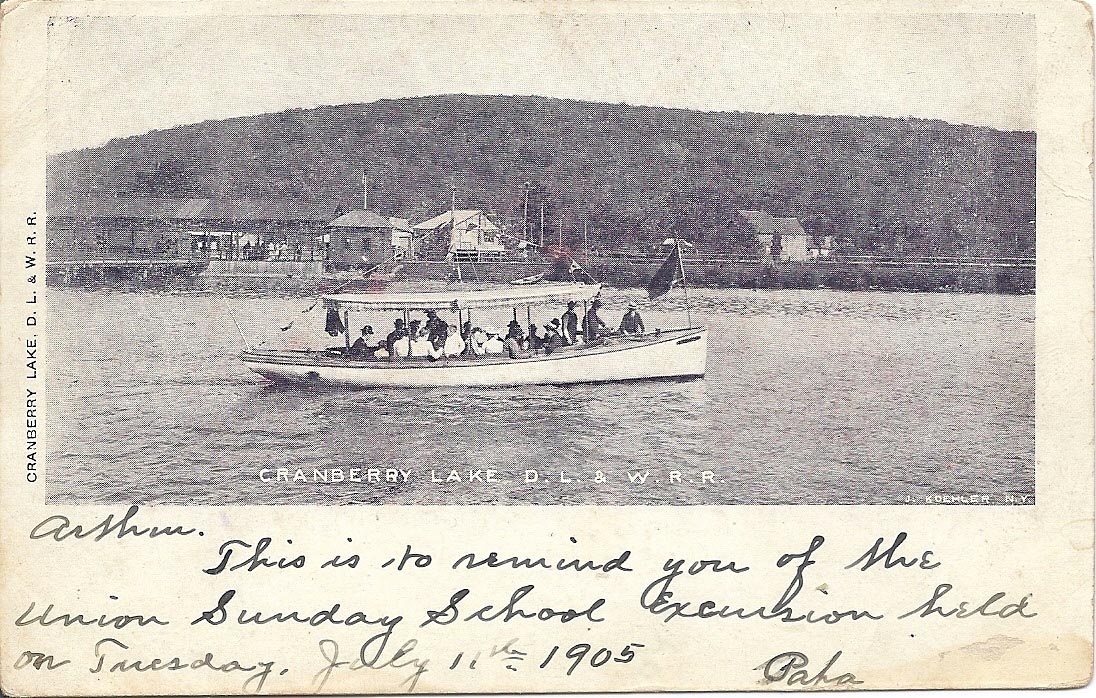 CRANBERRY LAKE, D. L. & W. R. R.
CRANBERRY LAKE, D. L. & W. R. R.
J. KOEHLER, N.Y.
Arthur.
This is to remind you of the
Union Sunday School Excursion held
on Tuesday, July 11th 1905
Papa